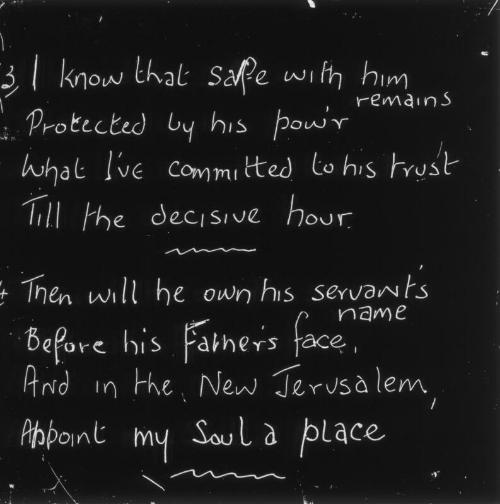 3, I know that safe with him
remains
Protected by his pow'r
What I've committed to his trust
Till the decisive hour.
4 Then will he own his servant's
name
Before his Father's face,
And in the, New Jerusalem,
Appoint my Soul a place